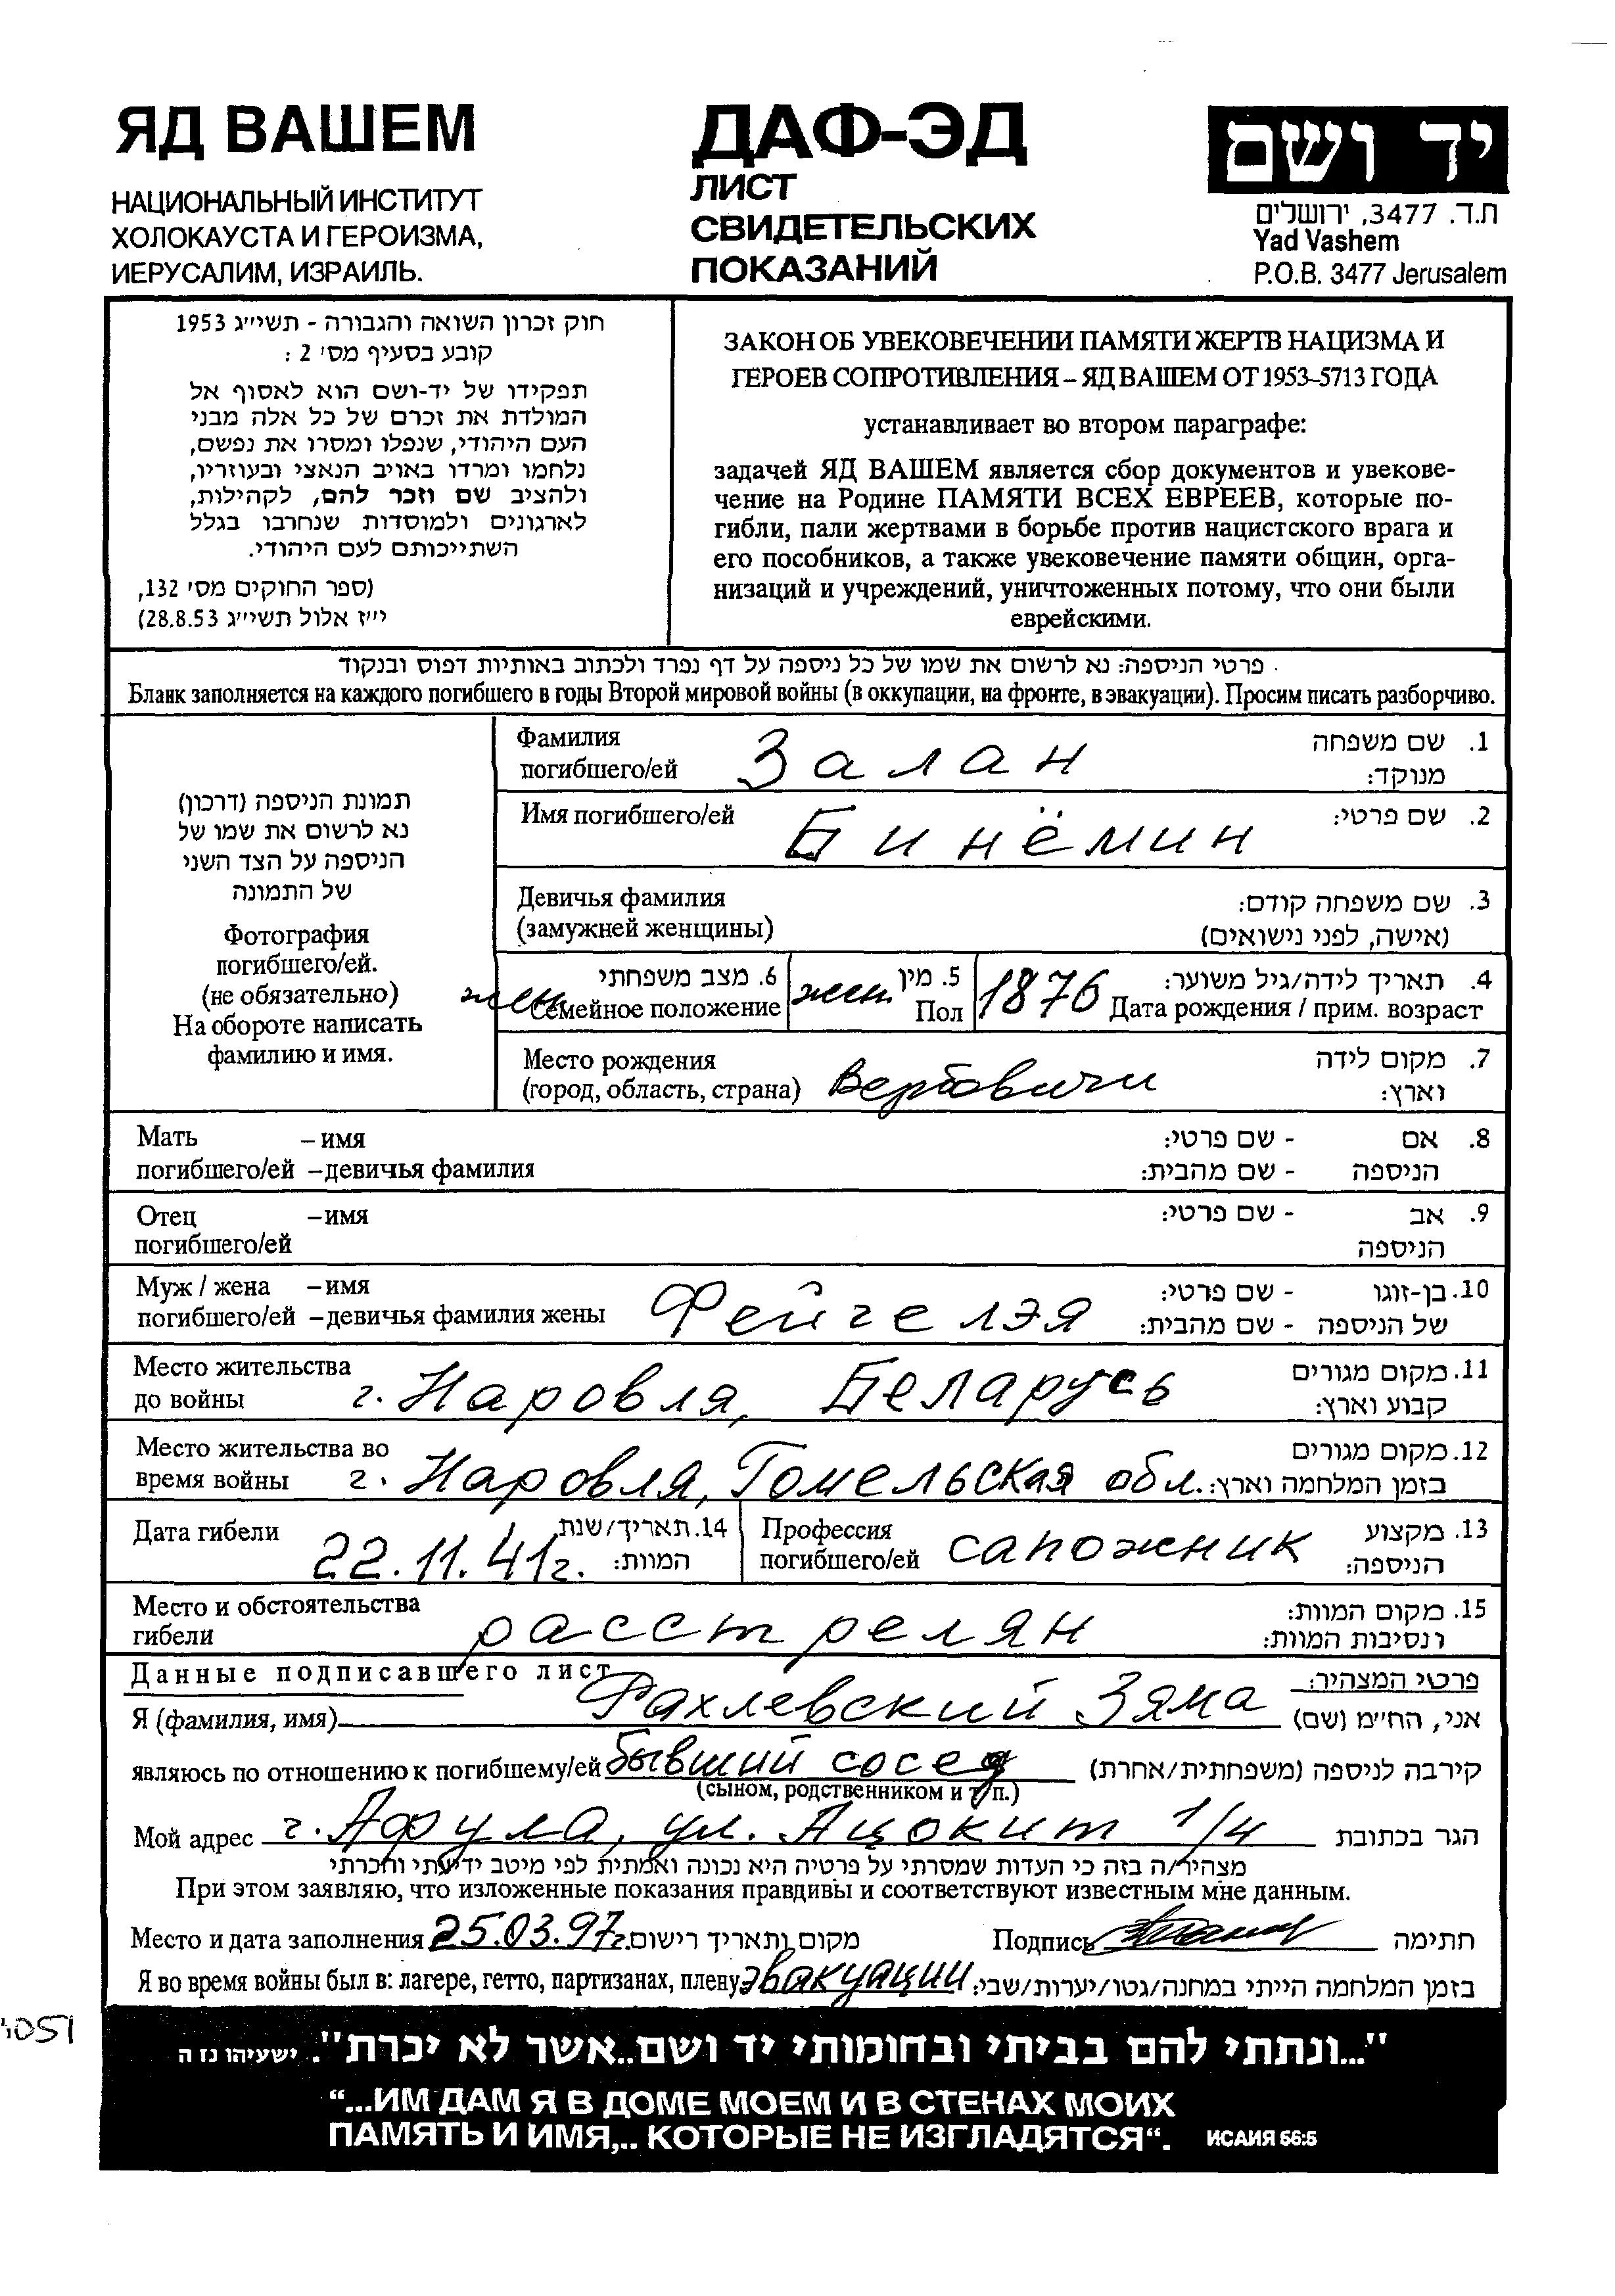 ЯД ВАШЕМ
НАЦИОНАЛЬНЫЙ ИНСТИТУТ
ХОЛОКАУСТА И ГЕРОИЗМА,
ИЕРУСАЛИМ, ИЗРАИЛЬ.
ДАФ-ЭД
ЛИСТ
СВИДЕТЕЛЬСКИХ
ПОКАЗАНИЙ
יד ושם
ת.ד. 3477, ירושלים
Yad Vashem
P.O.B. 3477 Jerusalem
חוק זכרון השואה והגבורה - תשי״ג 1953
קובע בסעיף מס׳ 2 :
תפקידו של יד-ושם הוא לאסוף אל
המולדת את זכרם של כל אלה מבני
העם היהודי, שנפלו ומסרו את נפשם,
נלחמו ומרדו באויב הנאצי ובעוזריו,
ולהציב שם וזכר להם, לקהילות,
לארגונים ולמוסדות שנחרבו בגלל
השתייכותם לעם היהודי.
(ספר החוקים מס׳ 132,
י״ז אלול תשי״ג 28.8.53)
ЗАКОН ОБ УВЕКОВЕЧЕНИИ ПАМЯТИ ЖЕРТВ НАЦИЗМА И
ГЕРОЕВ СОПРОТИВЛЕНИЯ – ЯД ВАШЕМ ОТ 1953–5713 ГОДА
устанавливает во втором параграфе:
задачей ЯД ВАШЕМ является сбор документов и увекове-
чение на Родине ПАМЯТИ ВСЕХ ЕВРЕЕВ, которые по-
гибли, пали жертвами в борьбе против нацистского врага и
его пособников, а также увековечение памяти общин, орга-
низаций и учреждений, уничтоженных потому, что они были
еврейскими.
פרטי הניספה: נא לרשום את שמו של כל ניספה על דף נפרד ולכתוב באותיות דפוס ובנקוד
Бланк заполняется на каждого погибшего в годы Второй мировой войны (в оккупации, на фронте, в эвакуации). Просим писать разборчиво.
תמונת הניספה (דרכון)
נא לרשום את שמו של
הניספה על הצד השני
של התמונה
Фотография
погибшего/ей.
(не обязательно)
На обороте написать
фамилию и имя.
Фамилия Залан 1. שם משפחה
погибшего/ей מנוקד:
Имя погибшего/ей Бинёмин 2. שם פרטי:
Девичья фамилия 3. שם משפחה קודם:
(замужней женщины) (אישה, לפני נישואים)
жен 6. מצב משפחתי жен. 5. מין 1876 4. תאריך לידה/גיל משוער:
Семейное положение Пол Дата рождения / прим. возраст
Место рождения 7. מקום לידה
(город, область, страна) Вербовичи וארץ:
Мать – имя 8. אם - שם פרטי:
погибшего/ей – девичья фамилия הניספה - שם מהבית:
Отец – имя 9. אב - שם פרטי:
погибшего/ей הניספה
Муж / жена – имя Фейгелэя 10. בן-זוגו - שם פרטי:
погибшего/ей – девичья фамилия жены של הניספה - שם מהבית:
Место жительства 11. מקום מגורים
до войны г. Наровля, Беларусь קבוע וארץ:
Место жительства во 12. מקום מגורים
время войны г. Наровля, Гомельская обл. בזמן המלחמה וארץ:
Дата гибели 22.11.41г. 14. תאריך/שנת המוות:
Профессия 13. מקצוע
погибшего/ей сапожник הניספה:
Место и обстоятельства 15. מקום המוות:
гибели расстрелян ונסיבות המוות:
Данные подписавшего лист פרטי המצהיר:
Я (фамилия, имя) Фахлевский Зяма אני, הח״מ (שם)
являюсь по отношению к погибшему/ей бывший сосед קירבה לניספה (משפחתית/אחרת)
(сыном, родственником и т.п.)
Мой адрес г. Афула, ул. Ацокит 1/4 הגר בכתובת
מצהיר/ה בזה כי העדות שמסרתי על פרטיה היא נכונה ואמתית לפי מיטב ידיעתי והכרתי
При этом заявляю, что изложенные показания правдивы и соответствуют известным мне данным.
Место и дата заполнения 25.03.97г. מקום ותאריך רישום Подпись חתימה
Я во время войны был в: лагере, гетто, партизанах, плену эвакуации בזמן המלחמה הייתי במחנה/גטו/יערות/שבי:
"...ונתתי להם בביתי ובחומותי יד ושם..אשר לא יכרת". ישעיהו נז ה
“...ИМ ДАМ Я В ДОМЕ МОЕМ И В СТЕНАХ МОИХ
ПАМЯТЬ И ИМЯ,.. КОТОРЫЕ НЕ ИЗГЛАДЯТСЯ“. ИСАИЯ 56:5